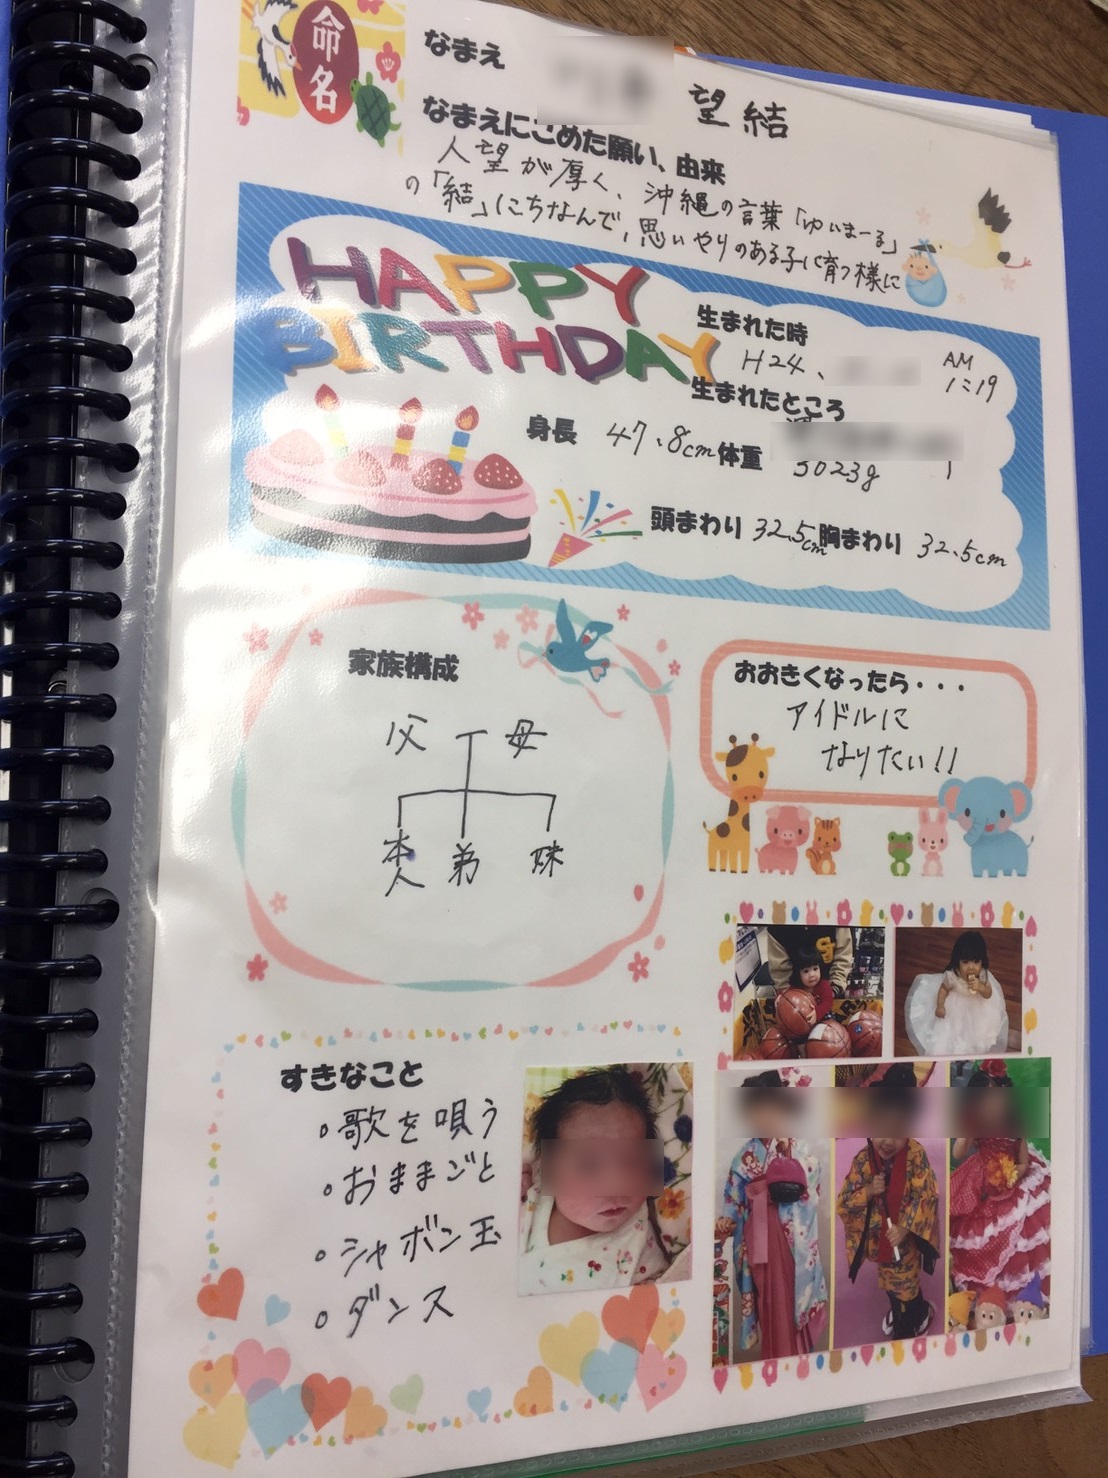 命名
なまえ
望結
なまえにこめた願い、由来
人望が厚く、沖縄の言葉「ゆいまーる」
の「結」にちなんで、思いやりのある子に育つ様に
HAPPY
BIRTHDAY
生まれた時
H24、 AM 1:19
生まれたところ
身長 47.8cm 体重 3023g
頭まわり 32.5cm 胸まわり 32.5cm
家族構成
父 母
本人 弟 妹
おおきくなったら・・・
アイドルに
なりたい!!
すきなこと
。歌を唄う
。おままごと
。シャボン玉
。ダンス